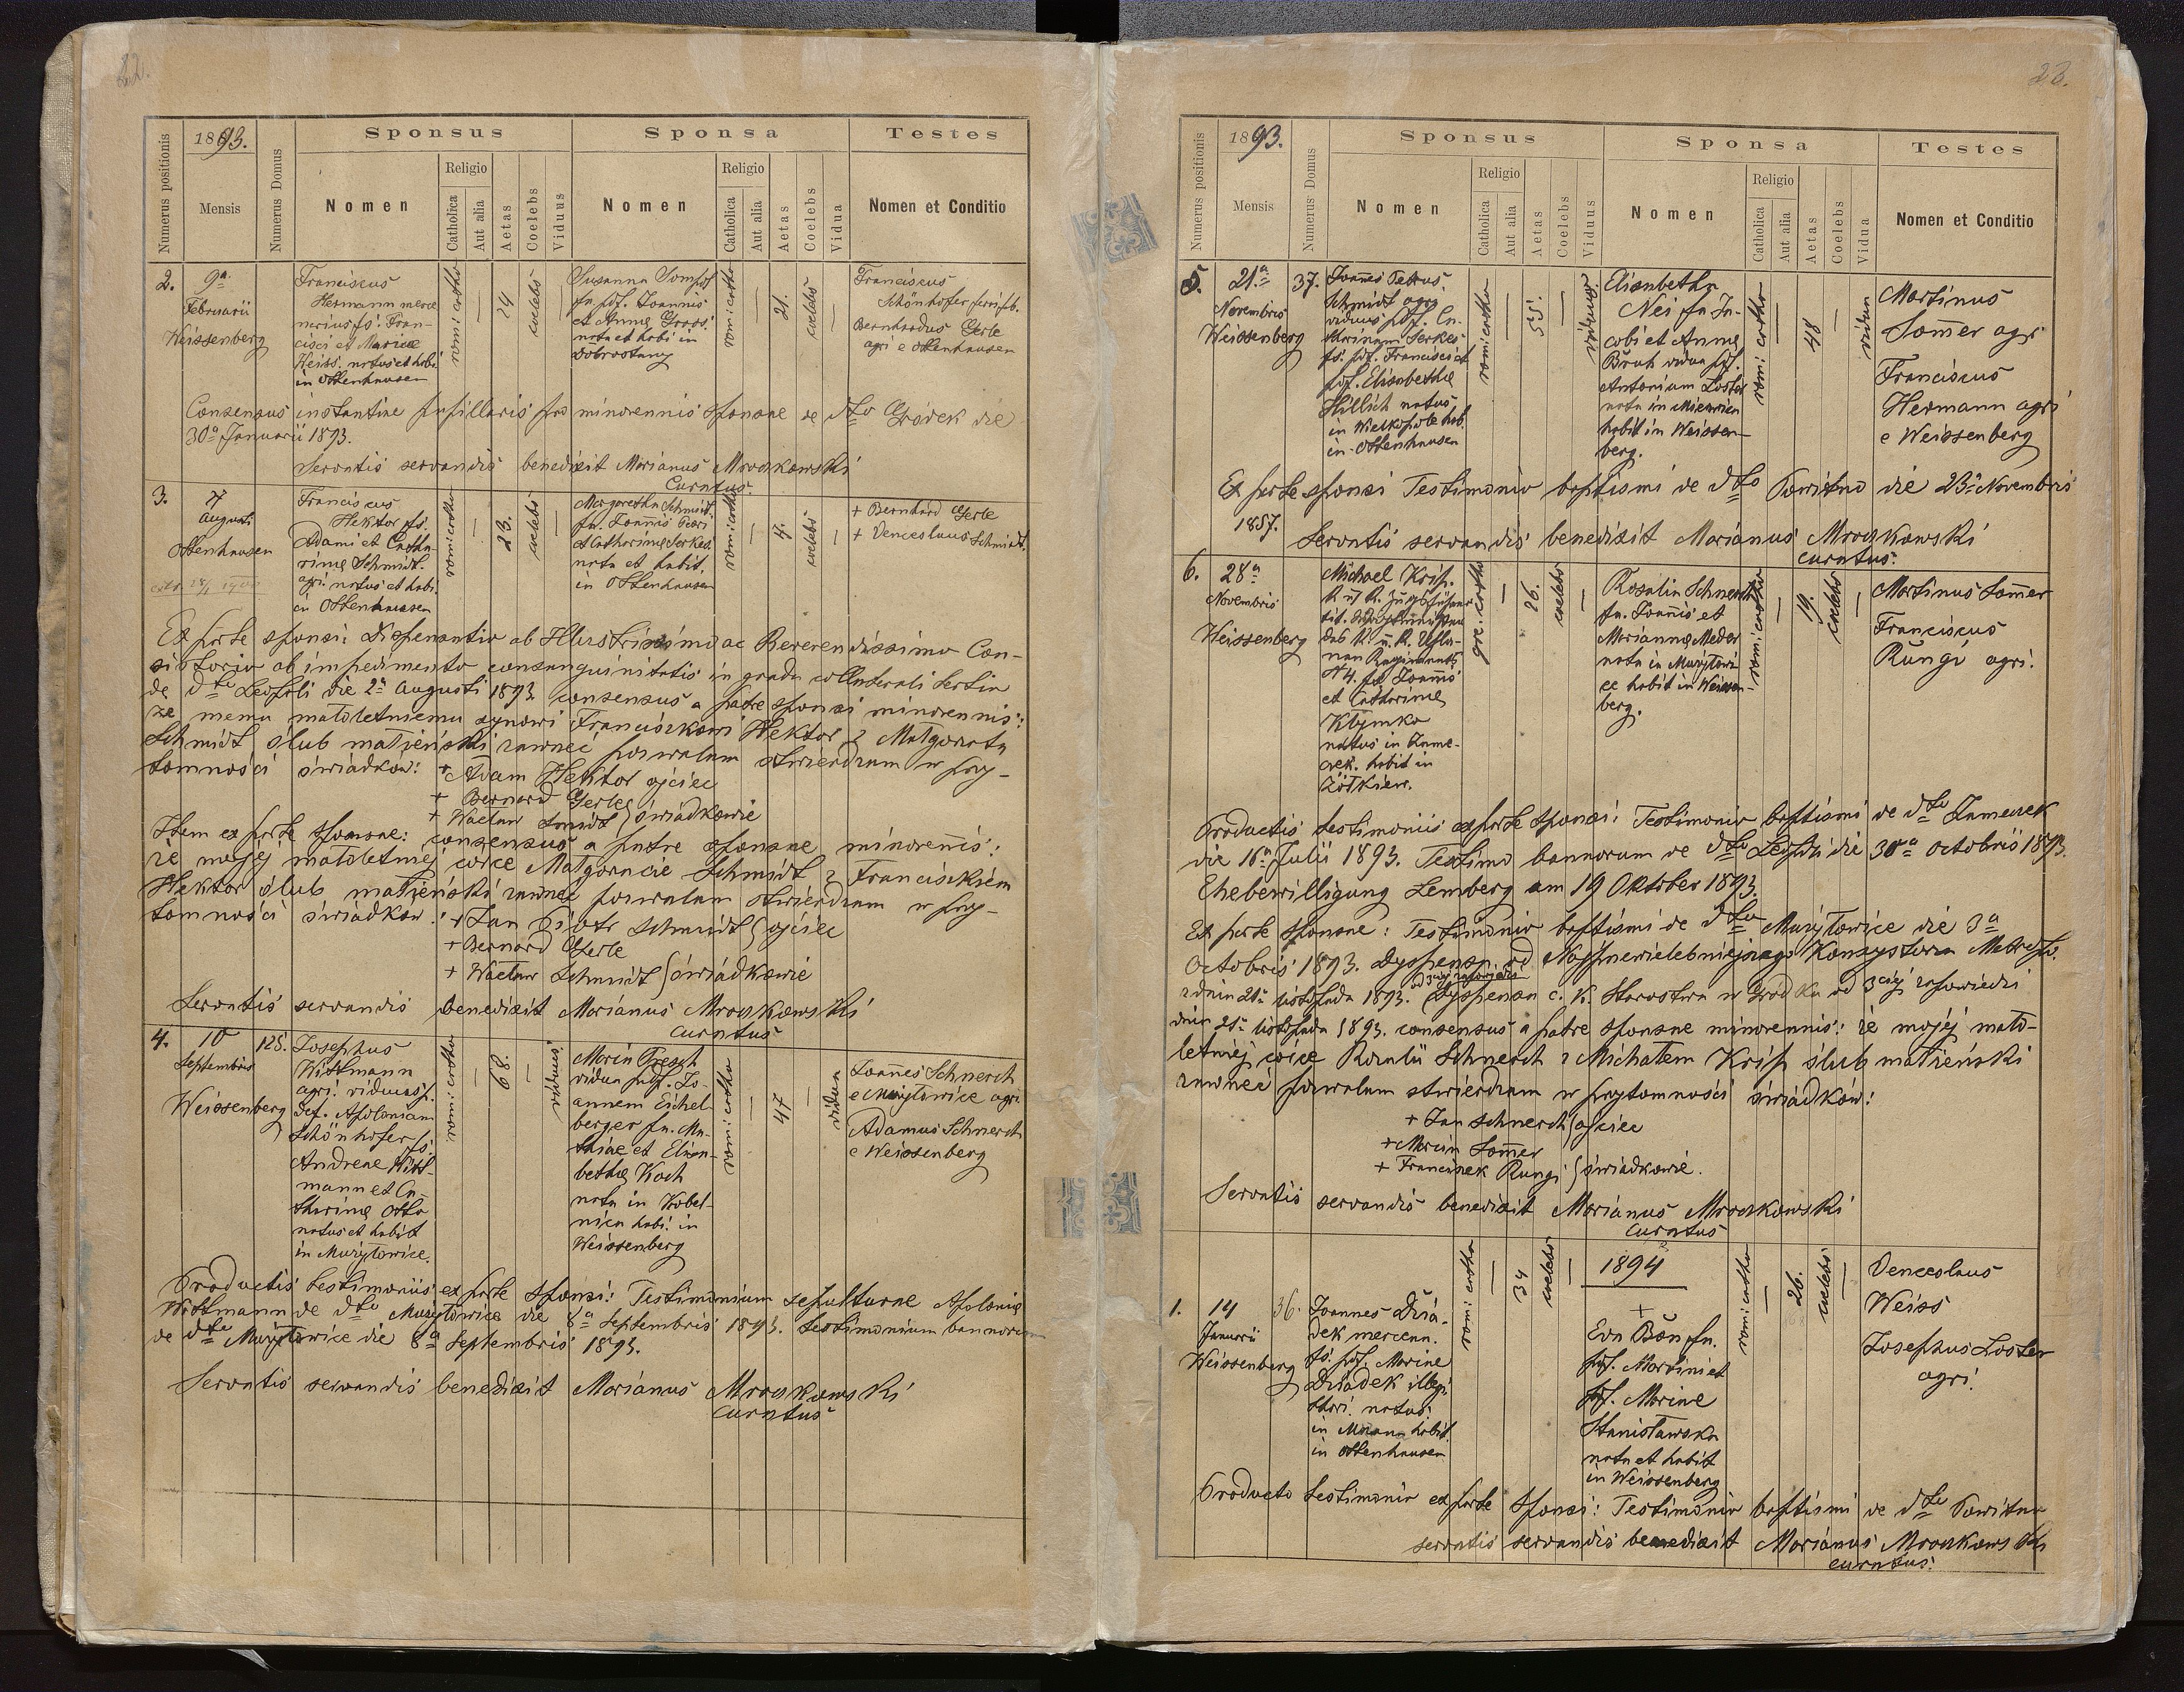 22.
Numerus positionis
1893.
Mensis
Numerus Domus
Sponsus
Nomen
Religio
Catholica
Aut alia
Aetas
Coelebs
Viduus
Sponsa
Nomen
Religio
Catholica
Aut alia
Aetas
Coelebs
Vidua
Testes
Nomen et Conditio
2.
9a
Februarii
Weissenberg
Franciscus
Hermann merce
narius fs. Fran-
cisci et Mariae
Weiss. natus et habi
in Ottenhausen
romi: catho
—
24
coelebs
—
Susanna
fa. pdf. Joannis
et Annae Gross.
nata et habi in
Dobrostany
romi: catho
—
21.
coelebs
—
Franciscus
Schönhofer
Bernhardus Gerle
agri e Ottenhausen
Consensus instantiae pupillaris pro minorennis sponsae de dto Gródek die
30a Januarii 1893.
Servatis servandis benedixit Marianus Mroczkowski
Curatus.
3.
7
Augusti
Ottenhausen
Franciscus
Hektor fs.
Adami et Catha-
rinae Schmidt.
agri. natus et habi.
in Ottenhausen
romi: catho
—
23.
coelebs
—
Margaretha Schmidt
fa. Joannis Petri
et Catharinae Serkes.
nata et habit.
in Ottenhausen
romi: catho
—
coelebs
—
+ Bernhard Gerle
+ Venceslaus Schmidt.
Ex parte sponsi: Dispensatio ab Illustrissimo ac Reverendissimo Con-
sistorio ab impedimento consanguinitatis in gradu collaterali tertio
de dto Leopoli die 2a Augusti 1893. consensus a patre sponsi minorennis:
że memu małoletniemu synowi Franciszkowi Hektor z Małgorzatą
Schmidt ślub małżeński zawrzeć pozwalam stwierdzam w przy-
tomności świadków: + Adam Hektor ojciec
+ Bernard Gerle
+ Wacław Szmidt } świadkowie
Item ex parte sponsae: consensus a patre sponsae minorennis:
że mojej małoletniej córce Małgorzacie Schmidt z Franciszkiem
Hektor ślub małżeński zawrzeć pozwalam stwierdzam w przy-
tomności świadków: + Jan Piotr Schmidt } ojciec
+ Bernard Gerle
+ Wacław Schmidt } świadkowie
Servatis servandis benedixit Marianus Mroczkowski
Curatus
4.
10
Septembris
Weissenberg
128.
Josephus
Wittmann
agri. viduus p.
def. Apoloniam
Schönhofer fs.
Andreae Witt-
mann et Ca-
tharinae Otto
natus et habit
in Mużyłowice.
romi: catho
—
68.
—
viduus.
Maria Presch
vidua pdf. Jo-
annem Eichel-
berger fa. Ma-
thiae et Elisa-
bethae Koch
nata in Kobel-
nica habi. in
Weissenberg
romi: catho
—
47
—
vidua
Joannes Schnerch
e Mużyłowice agri
Adamus Schnerch
e Weissenberg
Productis testimoniis ex parte sponsi: Testimonium sepulturae Apoloniae
Wittmann de dto Mużyłowice die 8a Septembris 1893. testimonium bannorum
de dto Mużyłowice die 8a Septembris 1893.
Servatis servandis benedixit Marianus Mroczkowski
Curatus
23.
Numerus positionis
1893.
Mensis
Numerus Domus
Sponsus
Nomen
Religio
Catholica
Aut alia
Aetas
Coelebs
Viduus
Sponsa
Nomen
Religio
Catholica
Aut alia
Aetas
Coelebs
Vidua
Testes
Nomen et Conditio
5.
21.a
Novembris
Weissenberg
37.
Joannes Petrus.
Schmidt agri
viduus pdf. Ca-
tharinam Serkes
fs. pdf. Francisci et
pdf. Elisabethae
Hillich natus
in Wielkopole hab.
in Ottenhausen
romi: catho
—
55.
—
viduus
Elisabetha
Nei fa Ja-
cobi et Annae
Bruh vidua pdf.
Antonium Loster
nata in
habit in Weissen-
berg.
romi: catho
—
48
—
vidua
Martinus
Sommer agri
Franciscus
Hermann agri
e Weissenberg
Ex parte sponsi Testimonio baptismi de dto Powitno die 23a Novembris
1857.
Servatis servandis benedixit Marianus Mroczkowski
curatus.
6.
28a
Novembris
Weissenberg
Michael Krip.
K u K. Zugsführer
tit.
des K. u. K. Uhla-
nen Regiments
N 4. fs Joannis
et Catharinae
Klymko
natus in Zame-
czek. habit in
Żółkiew.
gre. catho
—
26.
coelebs
—
Rosalia Schnerch
fa. Joannis et
Mariannae Meder
nata in Mużyłowi-
ce habit in Weissen-
berg.
romi: catho
—
19.
coelebs
—
Martinus Sommer
Franciscus
Rungi agri.
Productis testimoniis ex parte sponsi: Testimonio baptismi de dto Zameczek
die 16a Julii 1893. Testimo bannorum de dto Leopoli die 30a Octobris 1893.
Ehebewilligung Lemberg am 19 Oktober 1893.
Ex parte sponsae: Testimonio baptismi de dto Mużyłowice die 3a
Octobris 1893. Dyspensa od Najprzewielebniejszego Konsystorza Metropo.
z dnia 21a listopada 1893. Dyspensa c. k. Starostwa w Gródku od 3ciej zapowiedzi
dnia 21a listopada 1893. consensus a patre sponsae minorennis: że mojej mało-
letniej córce Rozalii Schnerch z Michałem Krip ślub małżeński
zawrzeć pozwalam stwierdzam w przytomności świadków:
+ Jan Schnerch } ojciec
+ Marcin Sommer
+ Franciszek Rungi } świadkowie.
Servatis servandis benedixit Marianus Mroczkowski
Curatus
1894
1.
14
Januarii
Weissenberg
36.
Joannes Dzia-
dek mercenn.
fs. pdf. Mariae
Dziadek illegi
thori. natus.
in Mszana habit.
in Ottenhausen
romi: catho
—
34
coelebs
—
+
Eva Bön fa.
pdf. Martini et
pdf. Mariae
Stanisławska
nata et habit
in Weissenberg
romi: catho
—
26.
coelebs
—
Venceslaus
Weiss
Josephus Loster
agri.
Producto testimonio ex parte sponsi: Testimonio baptismi de dto Powitno
servatis servandis benedixit Marianus Mroczkowski
curatus.